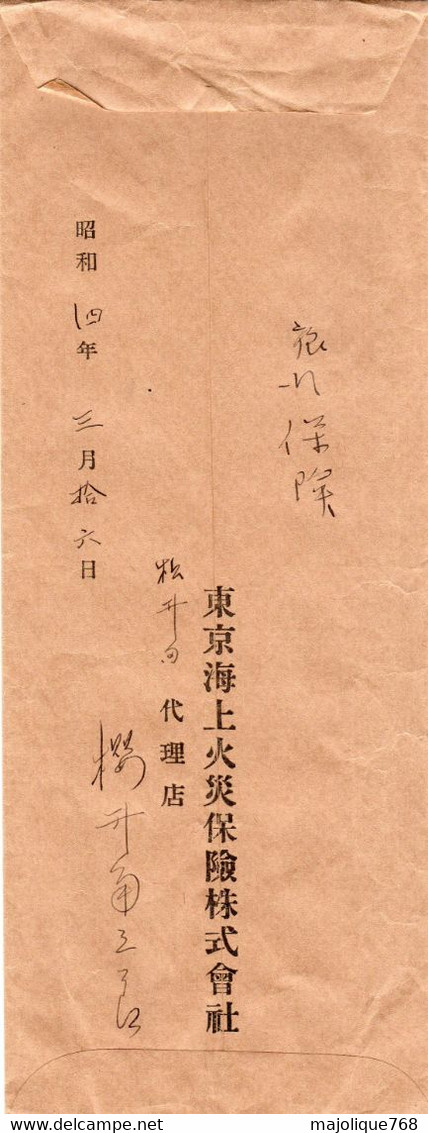 保険
東京海上火災保險株式會社
松井田 代理店
櫻井角三郎
昭和 四年 三月拾六日
majolique768